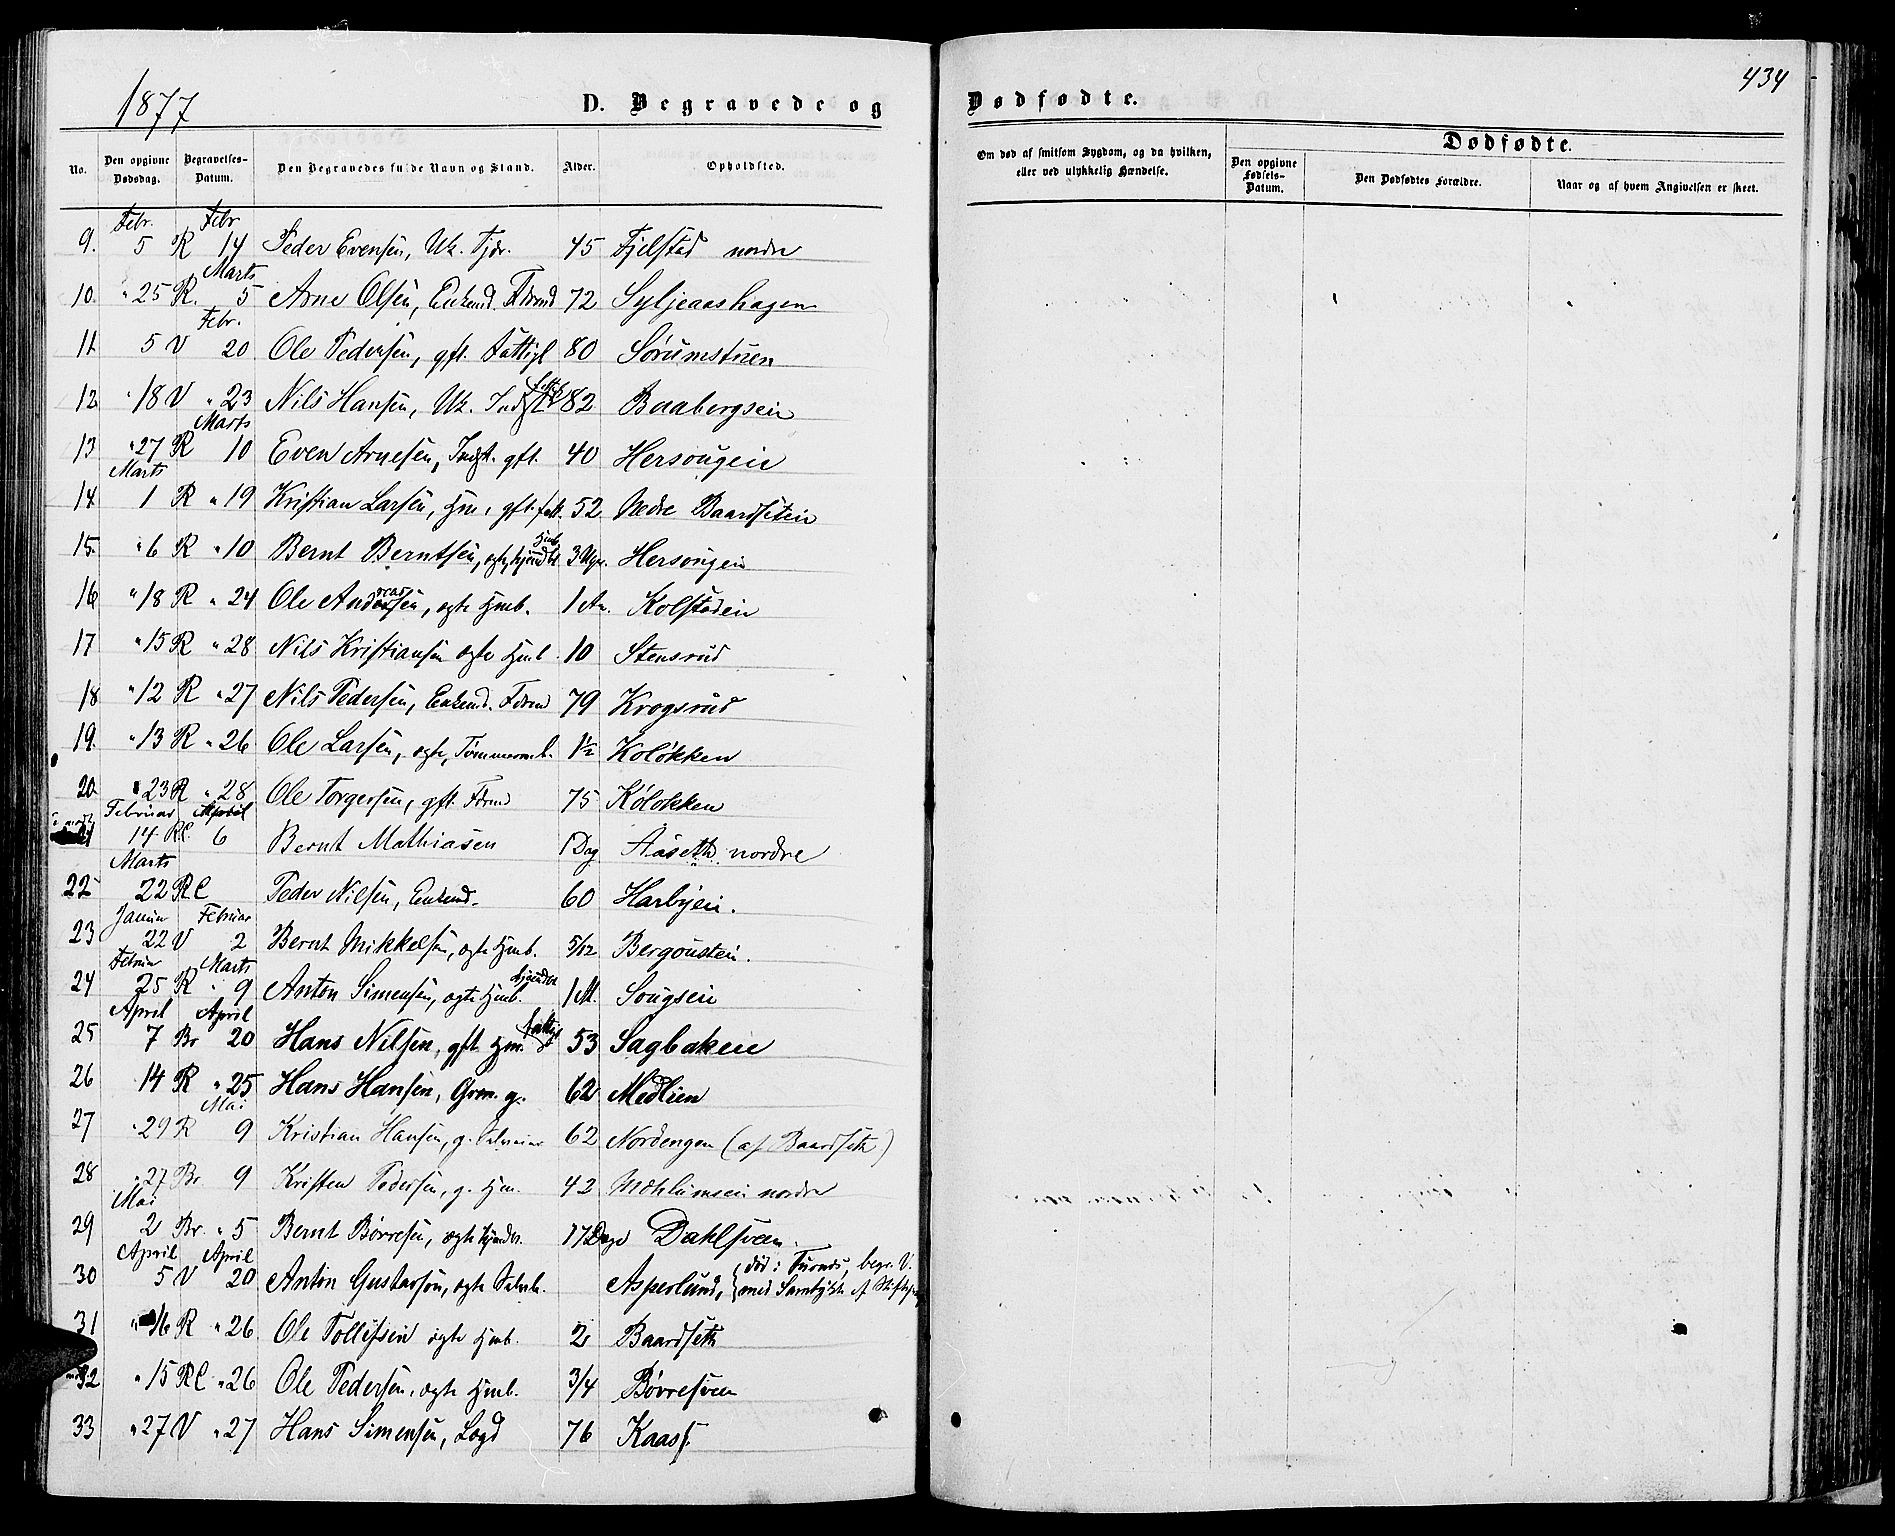 1877
D. Begravede og
Dødfødte.
434
No.
Den opgivne Dødsdag.
Begravelses-Datum.
Den Begravedes fulde Navn og Stand.
Alder.
Opholdsted.
Om død af smitsom Sygdom, og da hvilken, eller ved ulykkelig Hændelse.
Dødfødte.
Den opgivne Fødsels-Datum.
Den Dødfødtes Forældre.
Naar og af hvem Angivelsen er skeet.
Febr. Febr
9. 5 R 14 Peder Evensen, Uk. Tjdr. 45 Fjelstad nordre
Marts
10. " 25 R. 5 Arne Olsen, Enkemd. Fdrmd 72 Syljeaashagen
Febr.
11 5 V 20 Ole Pedersen, gft. Fattigl 80 Sørumstuen
12 " 18 V " 23 Nils Hansen, Uk. Indst 82 Baabergseie
Marts
13 " 27 R 10 Even Arnesen, Indst. gft. 40 Hersougeie
Marts
14 1 R " 19 Kristian Larsen, Hm, gft. fatt. 52 Nedre Baardseteie
15 " 6 R " 10 Bernt Berntsen, ægte, 3 Ugr. Hersougeie
16 " 18 R " 24 Ole Andreassen, ægte Hmb. 1 Aar. Kolstadeie
17 " 15 R " 28 Nils Kristiansen ægte Hmb 10 Stensrud
18 " 12 R " 27 Nils Pedersen, Enkemd. Fdrmd 79 Krogsrud
19. " 13 R " 26 Ole Larsen, ægte, Tømmermb. 1½ Koløkken
20 " 23 R " 28 Ole Torgersen, gft. Fdrmd 75 Koløkken
Februar April
21 14 R.C. 6 Bernt Mathiasen 1 Dag Aaseth nordre
Marts
22 22 R C Peder Nilsen, Enkemd. 60 Harbyeie.
Januar Februar
23 22 V 2 Bernt Mikkelsen, ægte Hmb. 5/12 Bergousteie.
Februar Marts
24 25 R " 9 Anton Simensen, ægte Hmb. 1 M. Sougseie
April April
25 7 Br 20 Hans Nilsen, gft Hm. fattigl 53 Sagbakeie
26 14 R " 25 Hans Hansen, Grm. g. 62 Medlien
Mai
27 " 29 R 9 Kristian Hansen, g. Selveier 62 Nordengen (af Baardseth)
28 " 27 Br 9 Kristen Pedersen, g. Hm. 42 Mæhlumseie nordre
Mai
29 2 Br. " 5 Bernt Børresen, ægte 17 Dage Dahlsveen.
April April
30 5 V 20 Anton Gustavsen, ægte Selveb. Asperlund, {død i Furnes, begr. V. med Samtykke af Stiftsp
31 " 16 R " 26 Ole Tollefsen ægte Hmb. 2 Baardseth
32 " 15 R C " 26 Ole Pedersen, ægte Hmb. 3/4 Børresveen
33 " 27 V " 27 Hans Simensen, Lægd 76 Kaass.